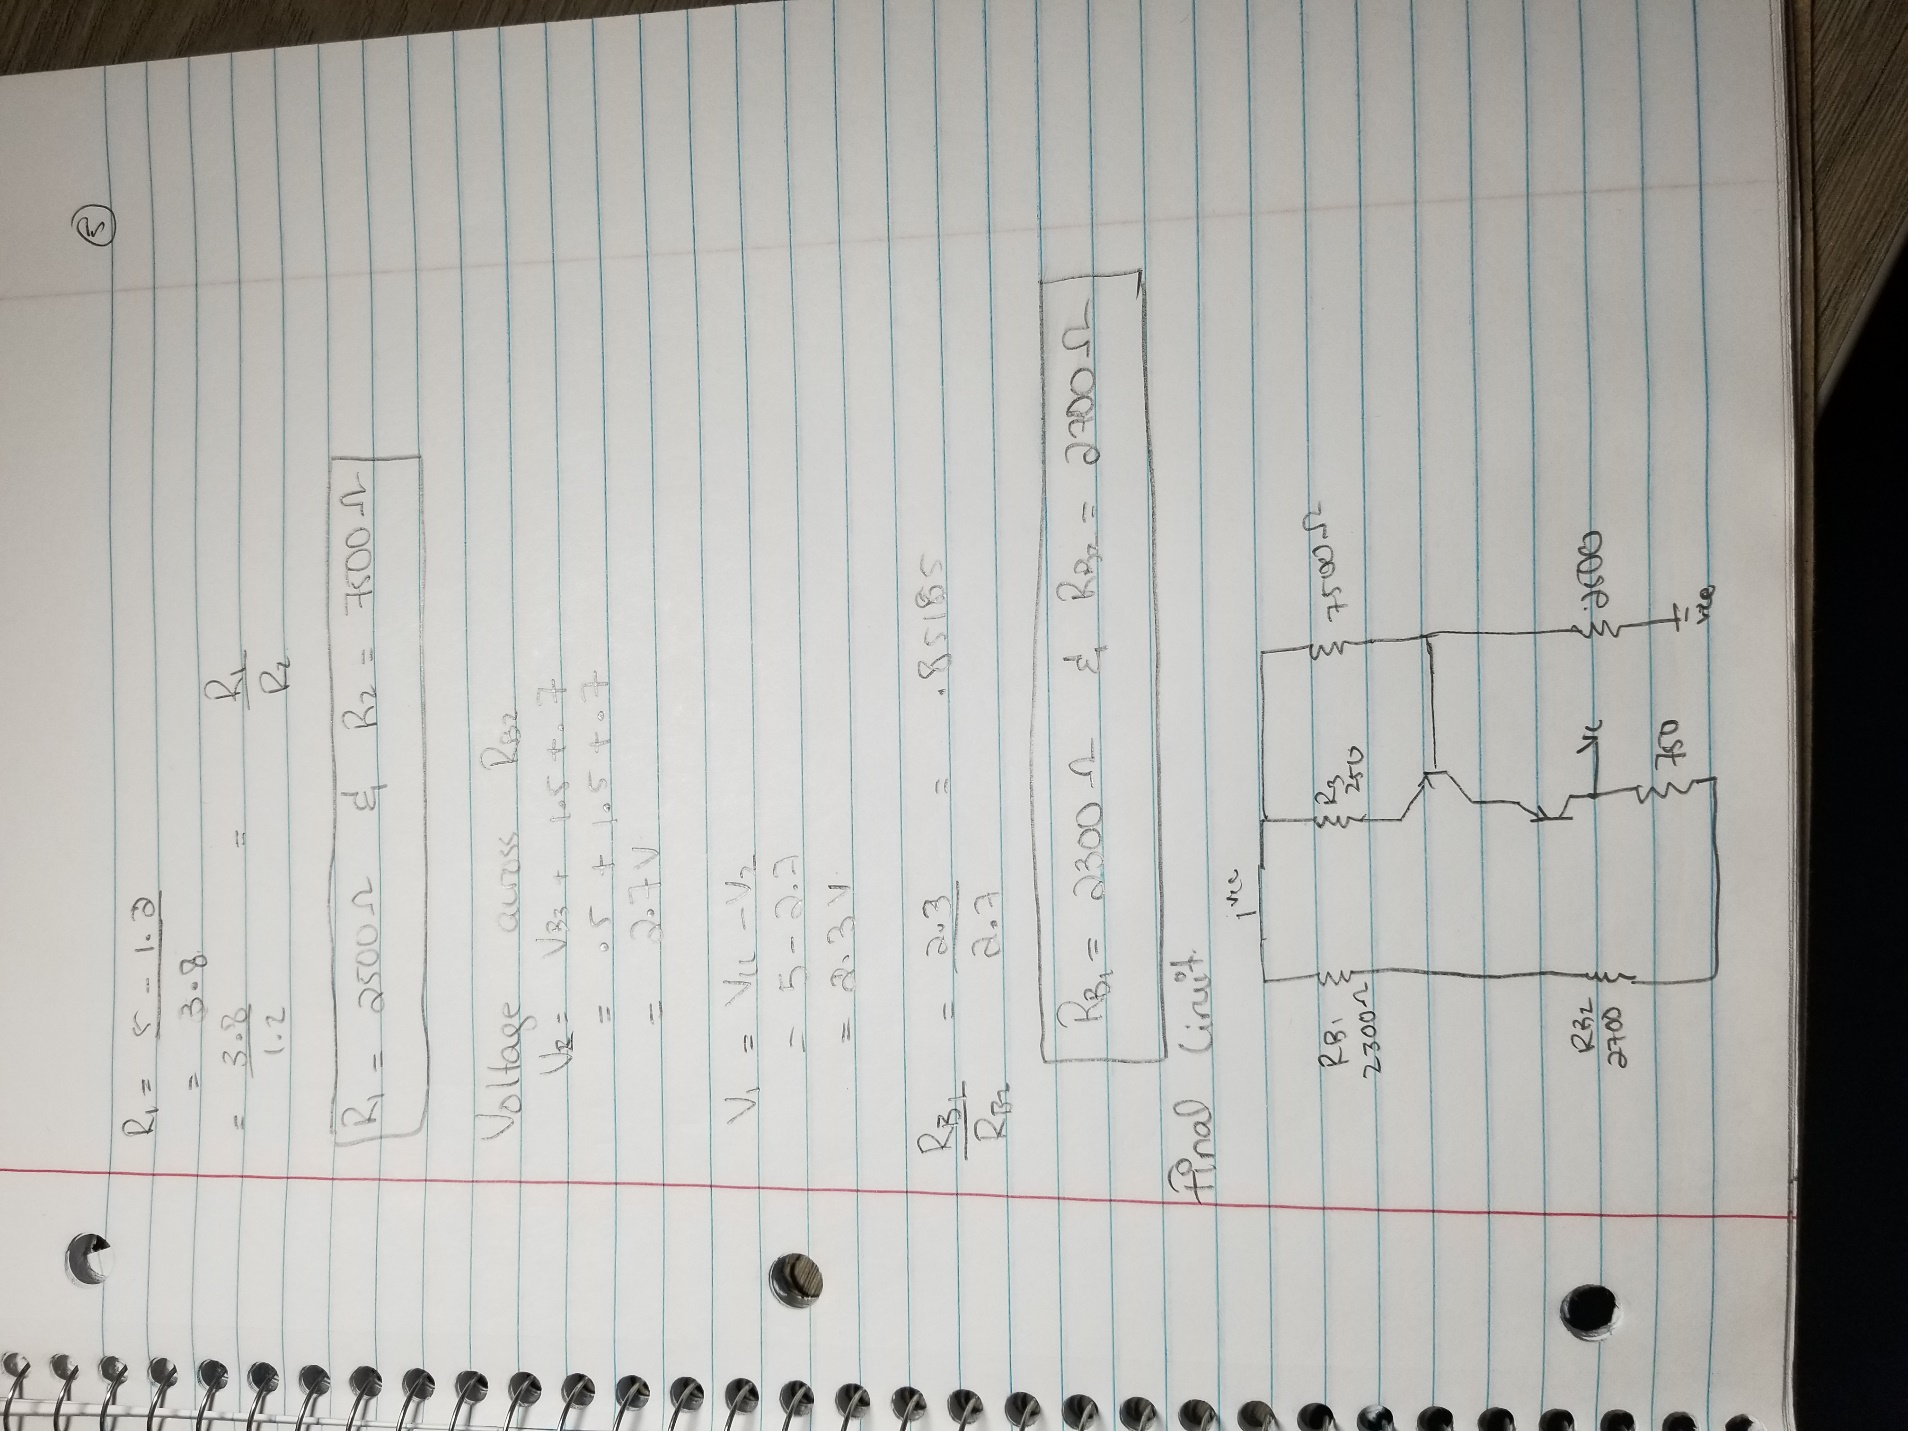 3
R₁ = 5 - 1.2
= 3.8
= 3.8/1.2 = R₁/R₂
R₁ = 2500Ω & R₂ = 7500Ω
Voltage across RB2
V₂ = VB3 + 1.5 + .7
= .5 + 1.5 + .7
= 2.7V
V₁ = Vcc - V₂
= 5 - 2.7
= 2.3V
RB1/RB2 = 2.3/2.7 = .85185
RB1 = 2300Ω & RB2 = 2700Ω
Final Circuit.
Vcc
RB1
2300Ω
R3
250
7500Ω
RB2
2700
Vc
750
2500